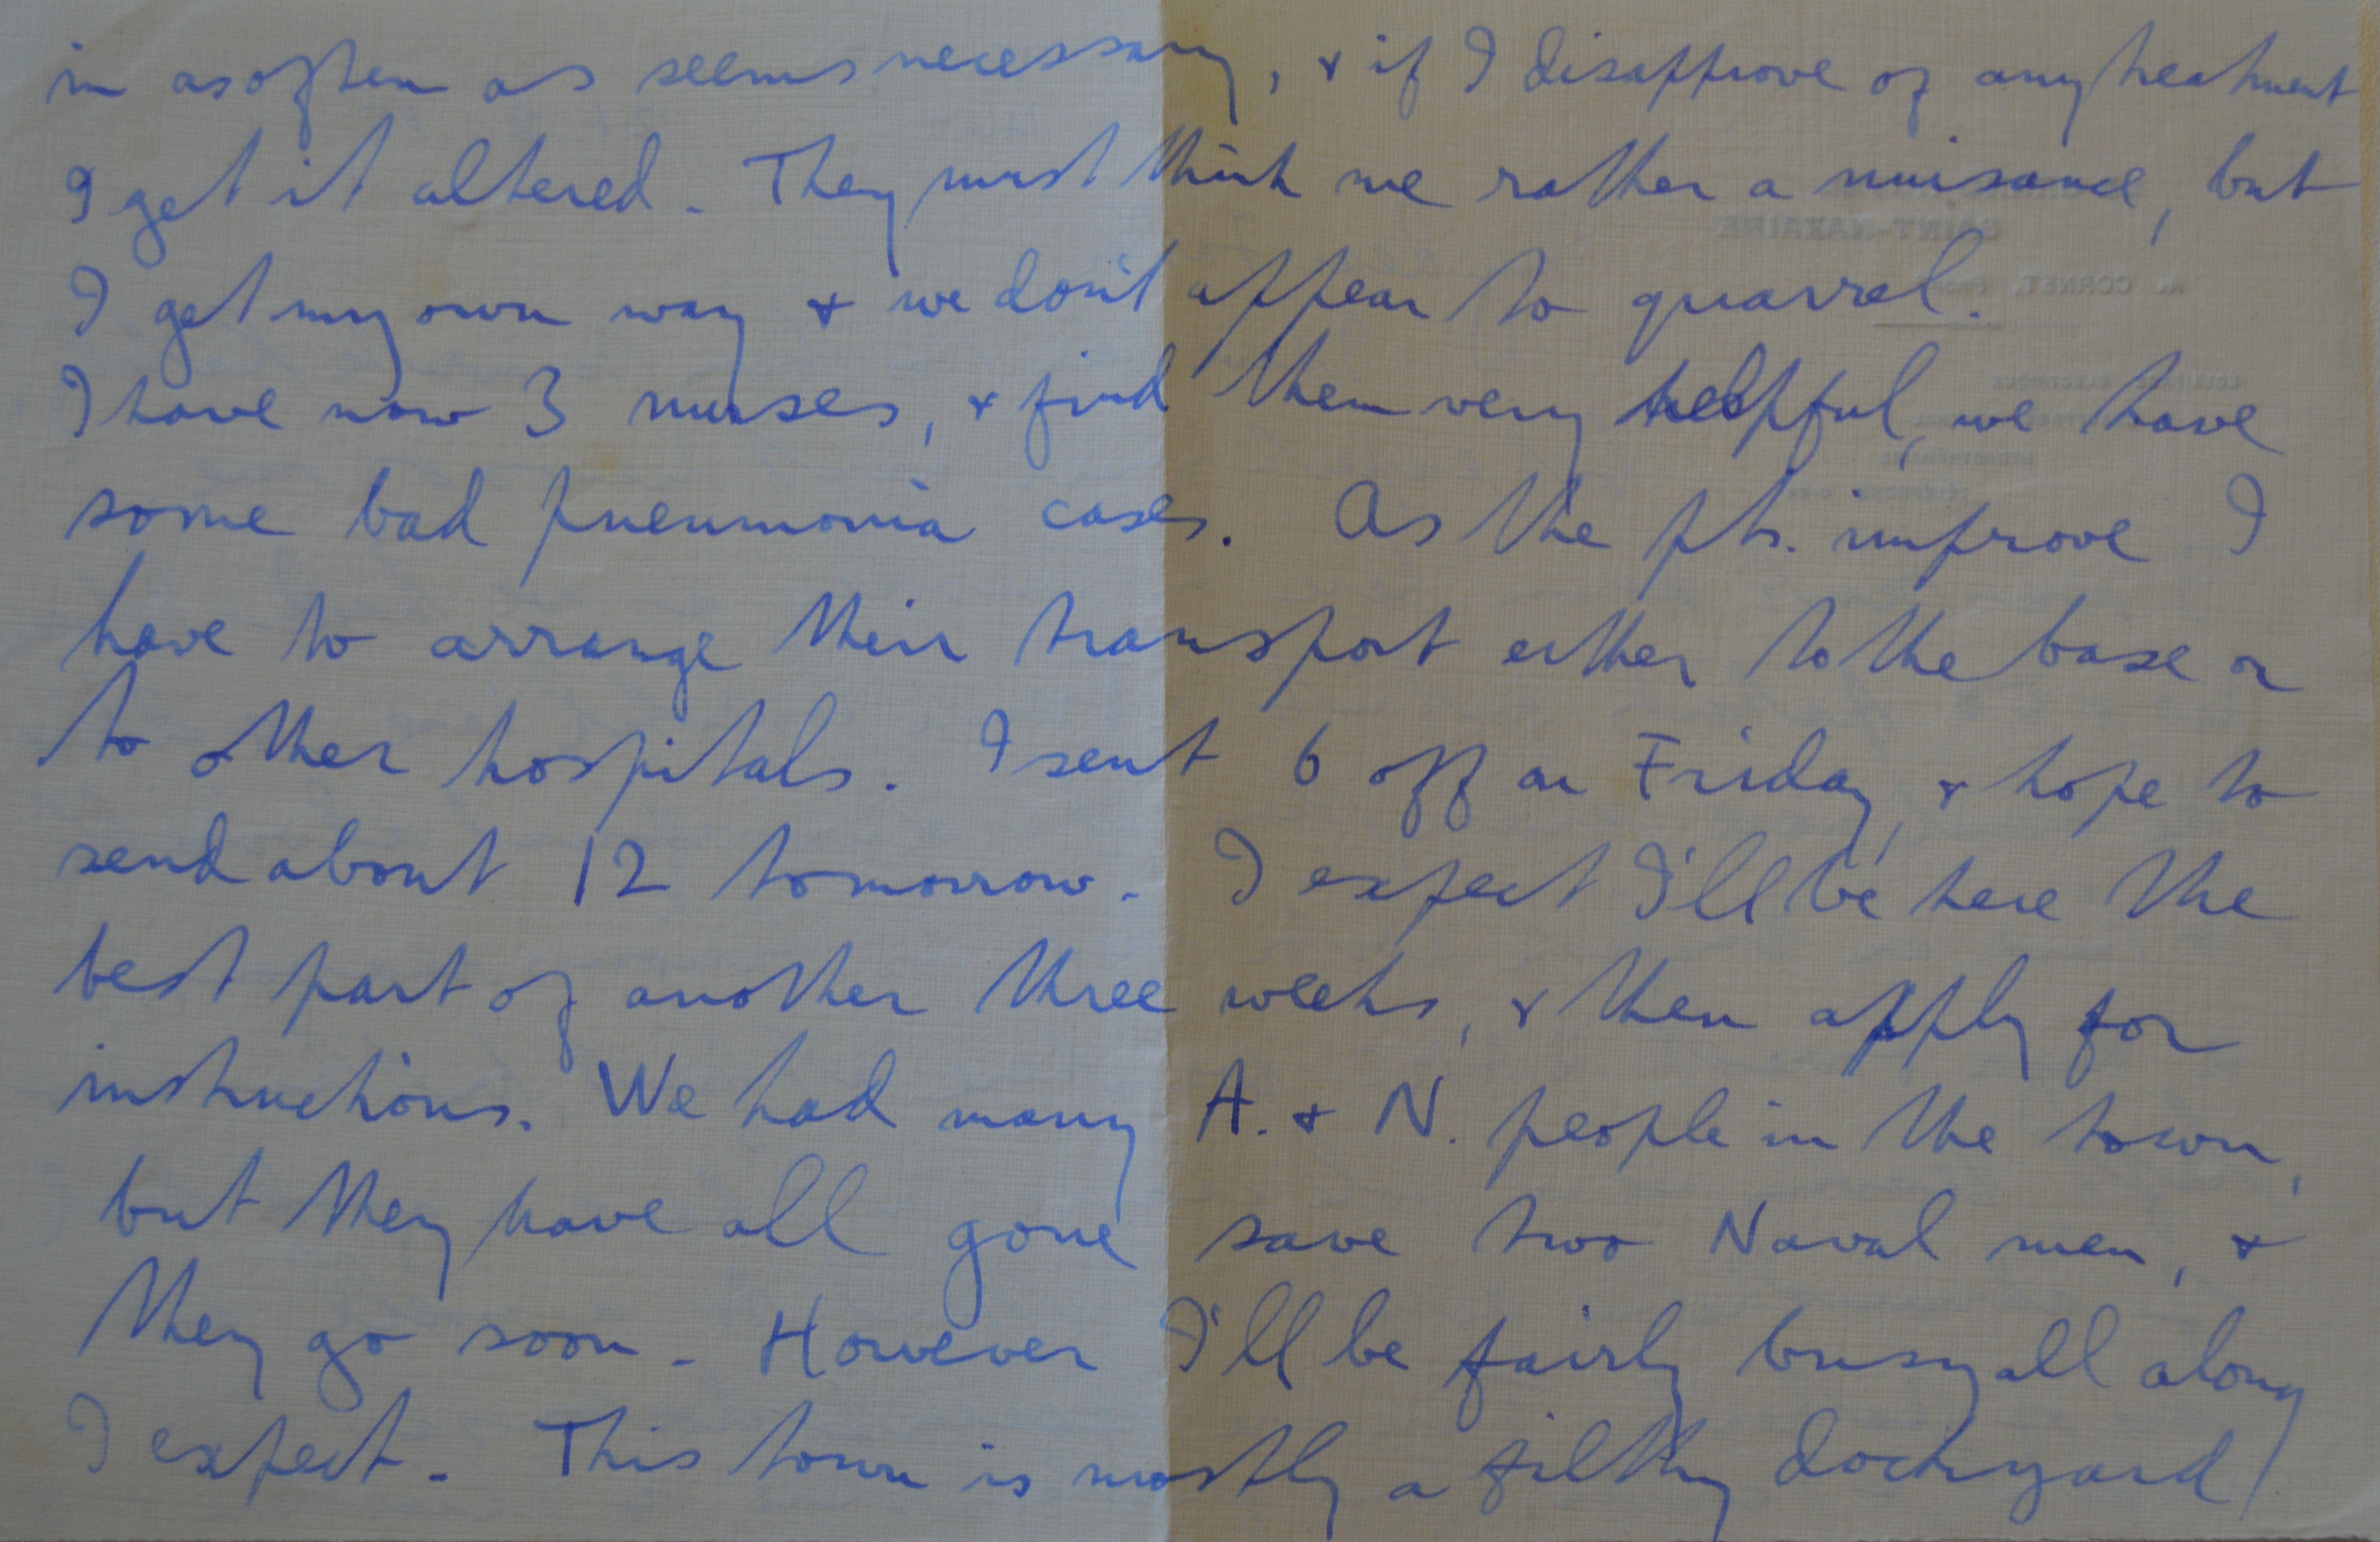 in as often as seems necessary, & if I disapprove of any treatment
I get it altered. They must think me rather a nuisance, but
I get my own way & we don't appear to quarrel.
I have now 3 nurses, & find them very helpful, we have
some bad pneumonia cases. As the pts. improve I
have to arrange their transport either to the base or
to other hospitals. I sent 6 off on Friday, & hope to
send about 12 tomorrow. I expect I'll be here the
best part of another three weeks, & then apply for
instructions. We had many A. & N. people in the town,
but they have all gone save two Naval men, &
they go soon. However I'll be fairly busy all along
I expect. This town is mostly a filthy dockyard
SAINT-NAZAIRE
CORNET,